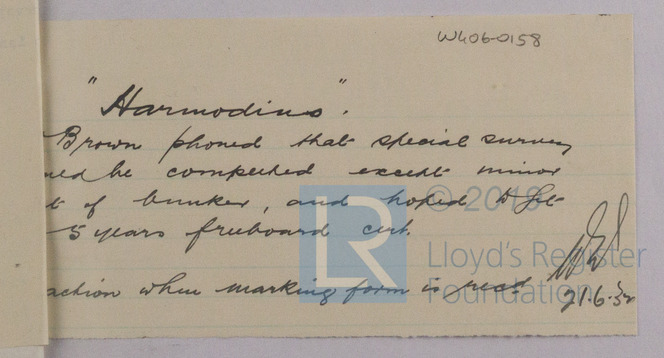 W406-0158
"Harmodius".
Brown phoned that special survey
uld be completed except minor
t of bunker, and hoped to get
5 years freeboard cert.
action when marking form is recd
21.6.32
LR
© 2018
Lloyd's Register
Foundation